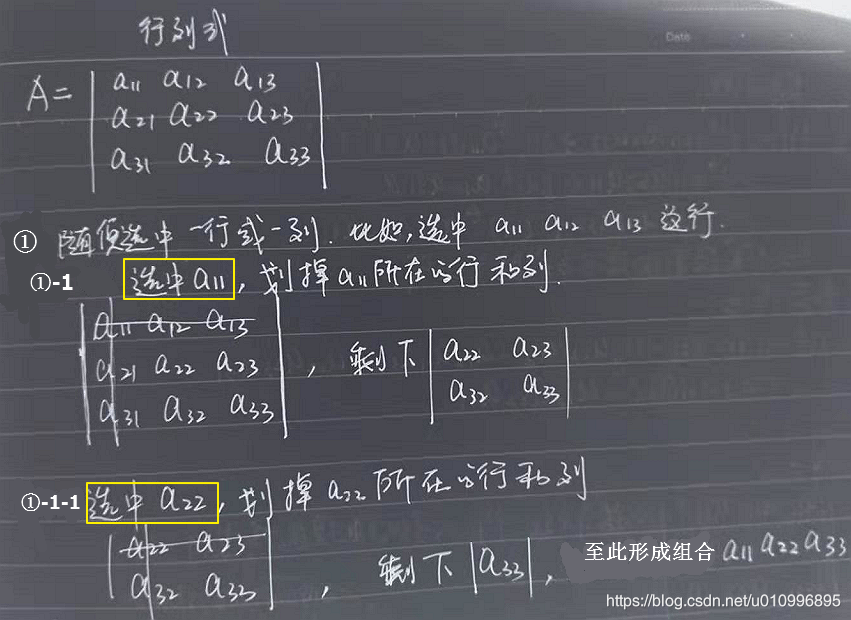 行列式
Date
A= | a11 a12 a13 |
| a21 a22 a23 |
| a31 a32 a33 |
① 随便选中一行或一列. 比如,选中 a11 a12 a13 这行.
①-1 选中a11, 划掉a11所在的行和列.
| a11 a12 a13 |
| a21 a22 a23 | , 剩下 | a22 a23 |
| a31 a32 a33 | | a32 a33 |
①-1-1 选中 a22, 划掉 a22 所在的行和列
| a22 a23 |
| a32 a33 | , 剩下 |a33|, 至此形成组合 a11 a22 a33
https://blog.csdn.net/u010996895